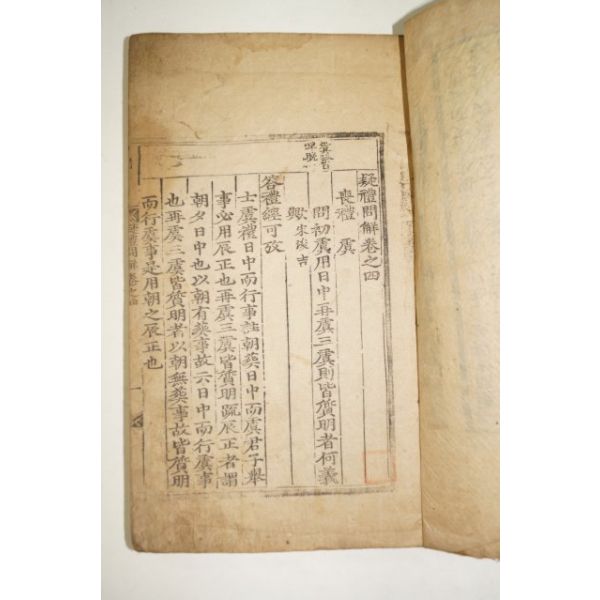 疑禮問解卷之四
喪禮 虞
問初虞用日中再虞三虞則皆質明者何義
歟 宋浚吉
答禮經可攷
士虞禮日中而行事註朝葬日中而虞君子擧
事必用辰正也再虞三虞皆質明疏辰正者謂
朝夕日中也以朝有葬事故云日中而行虞事
也再虞三虞皆質明者以朝無葬事故皆質明
而行虞事是用朝之辰正也
疑禮問解卷之四